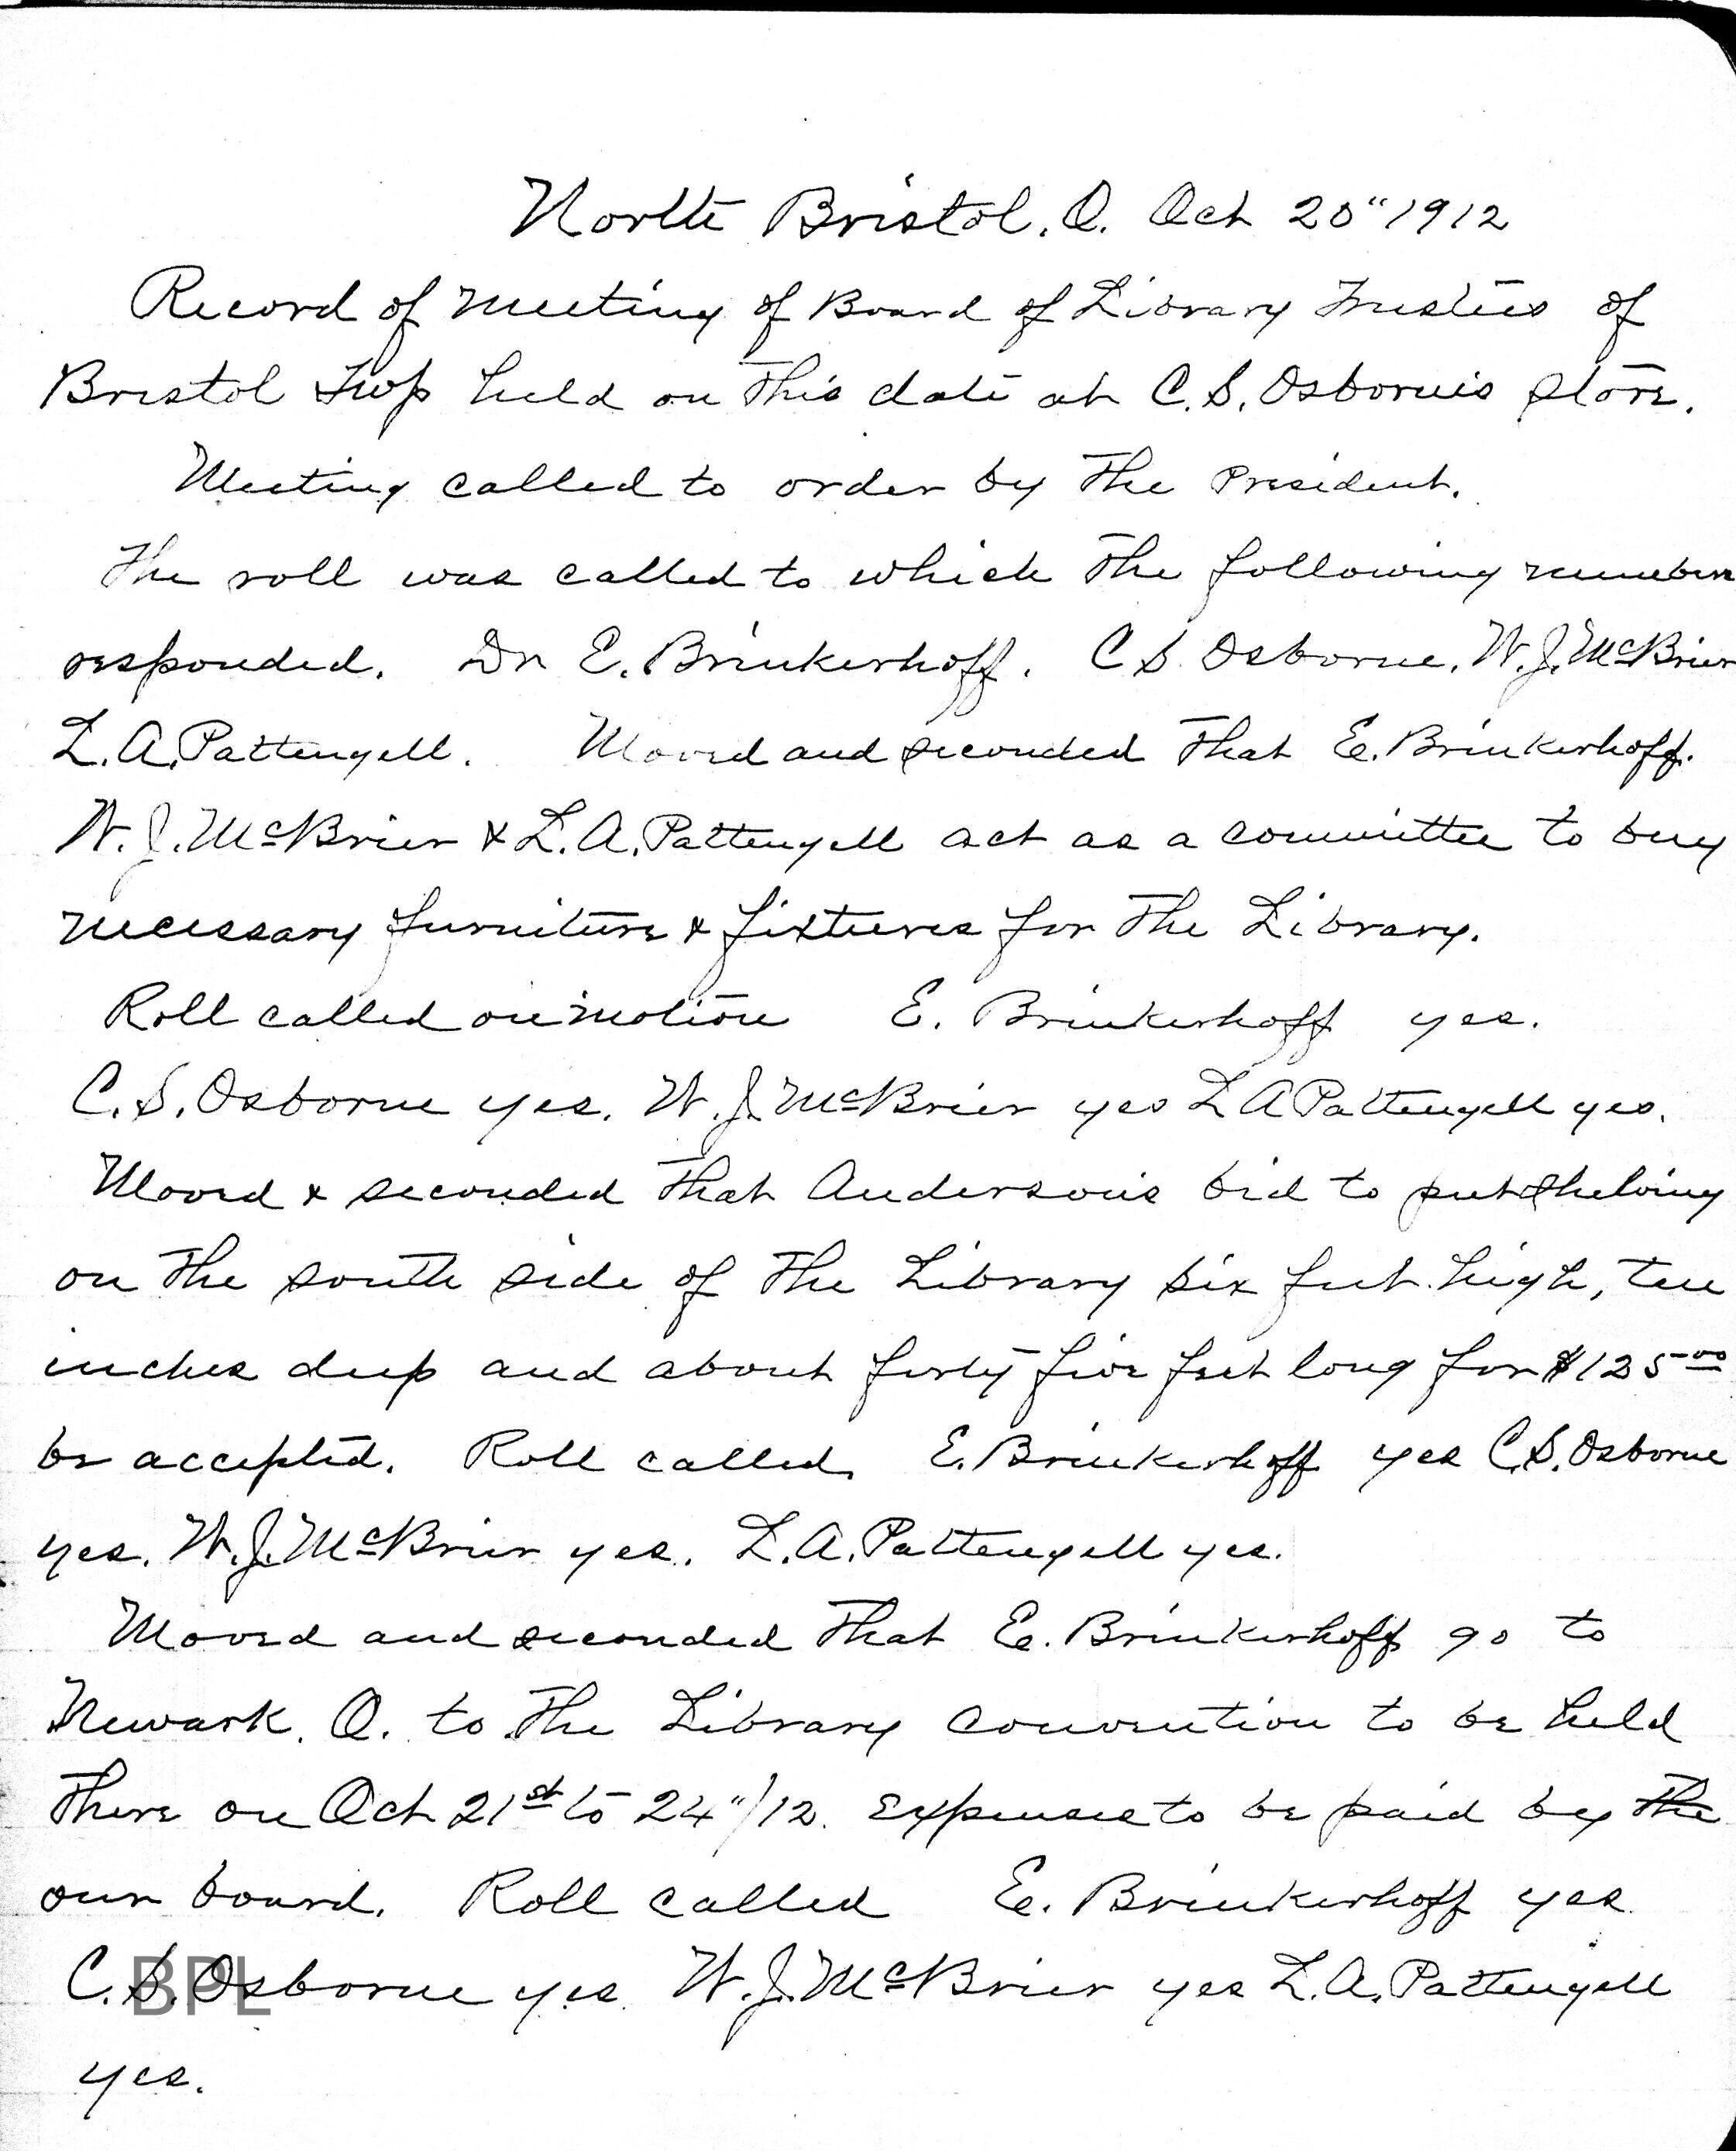 North Bristol, O. Oct 20" 1912
Record of meeting of Board of Library Trustees of
Bristol Twp held on this date at C. S. Osborne's store.
Meeting called to order by the President.
The roll was called to which the following members
responded. Dr E. Brinkerhoff. C S. Osborne. W. J. McBrier
L. A. Pattengell. Moved and seconded that E. Brinkerhoff.
W. J. McBrier & L. A. Pattengell act as a committee to buy
necessary furniture & fixtures for the Library.
Roll called on motion E. Brinkerhoff yes.
C. S. Osborne yes. W. J. McBrier yes L A Pattengell yes.
Moved & seconded that Anderson's bid to put shelving
on the south side of the Library six feet high, ten
inches deep and about forty five feet long for $125 00
be accepted. Roll called. E. Brinkerhoff yes C. S. Osborne
yes. W. J. McBrier yes. L. A. Pattengell yes.
Moved and seconded that E. Brinkerhoff go to
Newark. O. to the Library convention to be held
there on Oct 21st to 24"/12. expenses to be paid by the
our board. Roll called E. Brinkerhoff yes.
C. S. Osborne yes. W. J. McBrier yes L. A. Pattengell
yes.
BPL